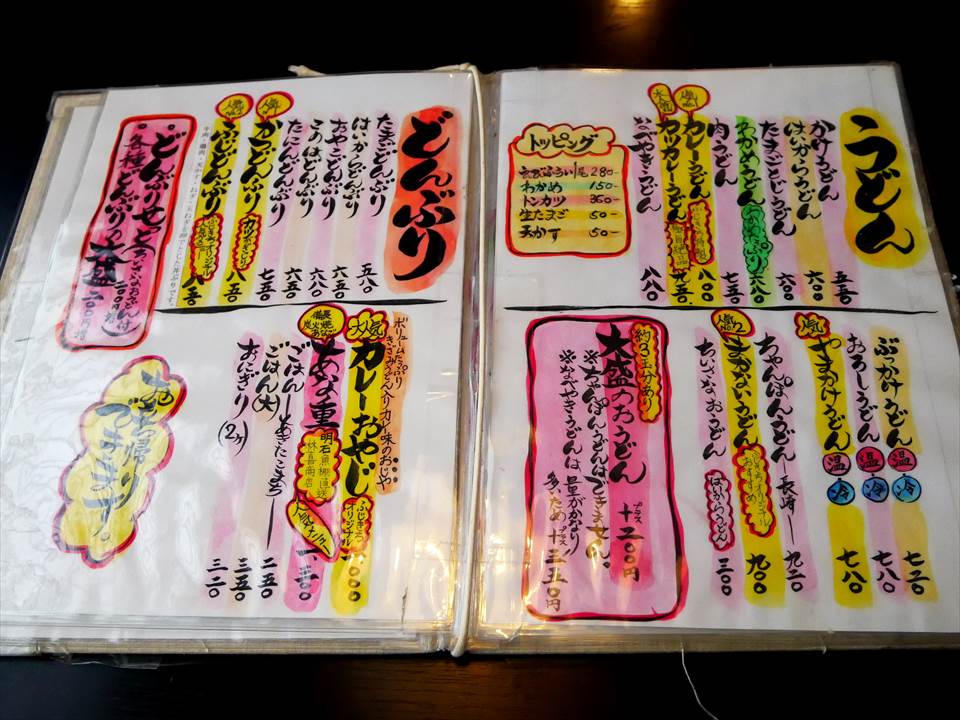 うどん
かけうどん 五五〇
はいからうどん 六〇〇
たまごとじうどん 六八〇
わかめうどん 七五〇
肉うどん
カレーうどん 八〇〇
人気
カツカレーうどん
なべやきうどん 八八〇
トッピング
わかめ 150-
トンカツ 360-
生たまご 50-
天かす 50-
ぶっかけうどん 温 冷 七二〇
おろしうどん 温 冷 七八〇
人気
ちゃんぽんうどん ー長崎ー 九二〇
人気No.2
まかないうどん 九〇〇
ちいさなおうどん はいからうどん 三〇〇
約2玉分あり
大盛のおうどん プラス 十二〇〇円
※ちゃんぽんうどんはできません。
※なべやきうどんは、量がかなり
多いため プラス 十三五〇円
どんぶり
たまごどんぶり 五八〇
はいからどんぶり 六五〇
おやこどんぶり 六八〇
このはどんぶり 六五〇
たにんどんぶり 七五〇
人気
かつどんぶり 八五〇
人気
ふじどんぶり
どんぶりせっと
各種どんぶりの大盛 二〇〇円増
ボリュームたっぷり
きざみうどん入りカレー味のおじや
大人気
カレーおやじ ふじきろうオリジナル
備長炭火焼あなご
あな重 明石魚棚直送 林喜商店 人気メニュー 一、三〇〇
ごはん ーあきたこまちー 二五〇
ごはん(大) 三五〇
おにぎり(2ケ) 三二〇
お持帰り
できます。